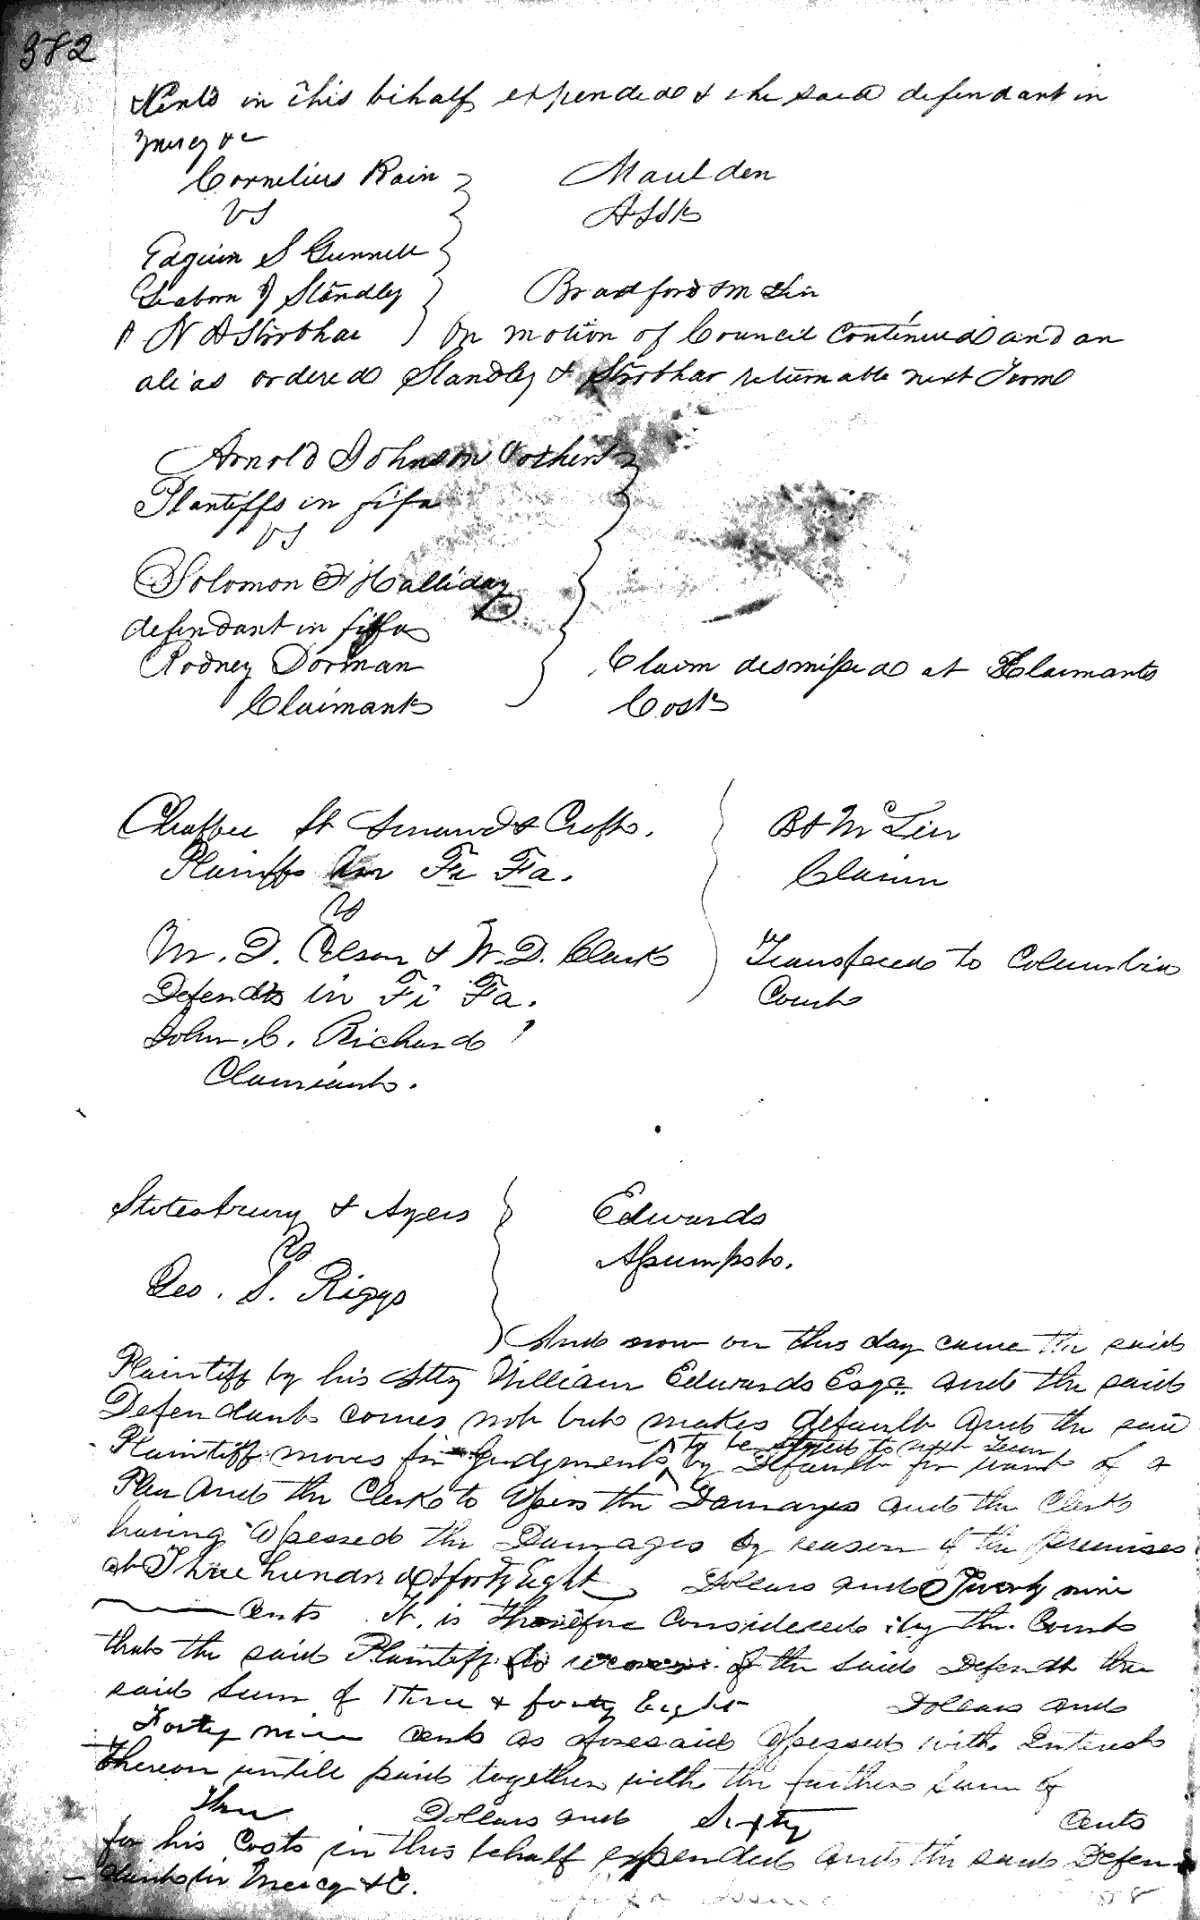 382
Cents in this behalf expended & the said defendant in
mercy &c
Cornelius Rain
Maulden
vs
Asst
S Gunnell
Seaborn J Standley
Bradford McLin
N A Strobhar
On motion of Council continued and an
alias ordered Standley & Strobhar returnable next Term
Arnold Johnson & others
Plantiffs in fifa
vs
Solomon F Halliday
defendant in fifa
Rodney Dorman
Claim desmissed at Claimants
Claimant
Cost
Chaffee St & Crofts.
B & McLin
Plaintiffs in Fi Fa.
Claim
vs
M. D. & W. D. Clark
Transfered to Columbia
Defendts in Fi Fa.
Court
John C. Richard
Claimant.
Stotesbury & Ayers
Edwards
vs
Assumpsit.
Geo. S. Riggs
And now on this day came the said
Plaintiff by his Atty William Edwards Esqr and the said
Defendant comes not but makes default and the said
to be to next Term
Plaintiff moves for Judgment by Default for want of a
Plea And the Clerk to Assess the Damages and the Clerk
having Assessed the Damages by reason of the premises
at Three hundred & forty Eight Dollars and Twenty nine
Cents It is Therefore Considered by the Court
that the said Plaintiff do recover of the said Defendt the
said sum of Three & forty Eight Dollars and
Forty nine cents as aforesaid Assessed with Interest
Thereon untill paid together with the further sum of
Three Dollars and Sixty Cents
for his Costs in this behalf expended and the said Defen-
-dant in Mercy &C.